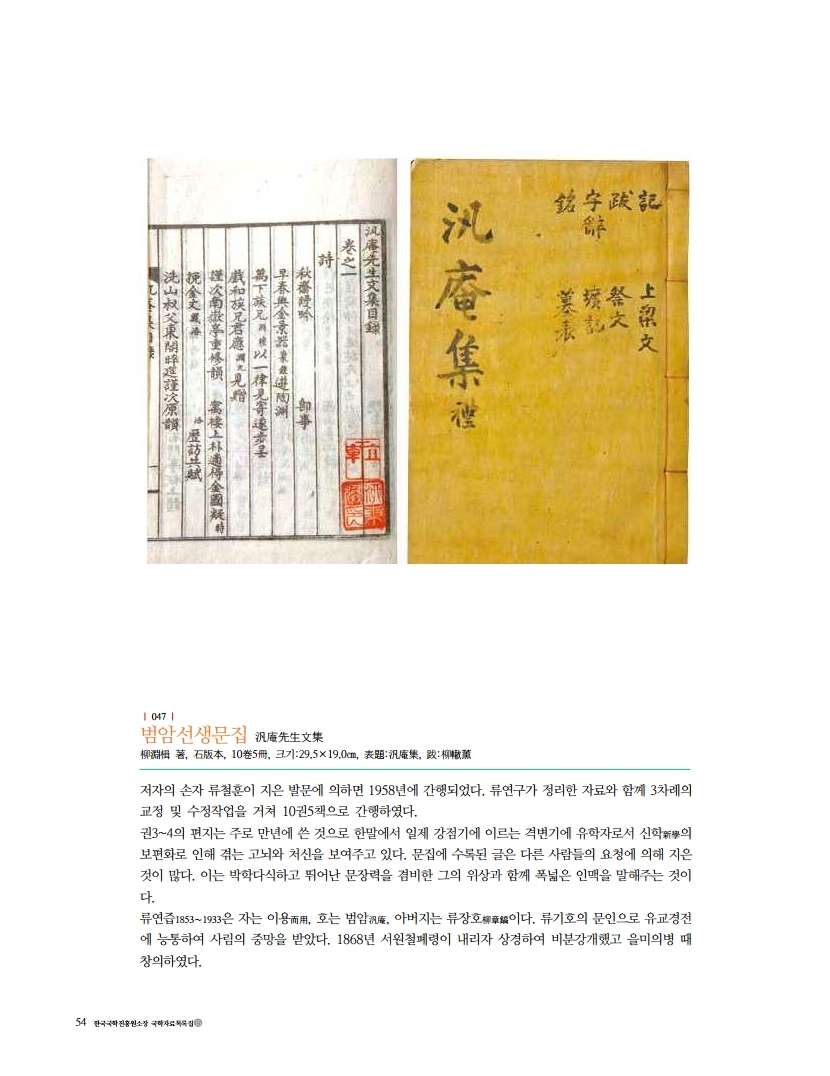 記 上樑文
跋 祭文
字辭 壙記
銘 墓表
汎庵集 禮
汎庵先生文集目錄
卷之一
詩
秋齋謾吟 卽事
戲和族兄君應見贈
謹次南嶽亭重修韻
| 047 |
범암선생문집 汎庵先生文集
柳淵楫 著, 石版本, 10卷5冊, 크기:29.5×19.0㎝, 表題:汎庵集, 跋:柳轍薰
저자의 손자 류철훈이 지은 발문에 의하면 1958년에 간행되었다. 류연구가 정리한 자료와 함께 3차례의
교정 및 수정작업을 거쳐 10권5책으로 간행하였다.
권3~4의 편지는 주로 만년에 쓴 것으로 한말에서 일제 강점기에 이르는 격변기에 유학자로서 신학新學의
보편화로 인해 겪는 고뇌와 처신을 보여주고 있다. 문집에 수록된 글은 다른 사람들의 요청에 의해 지은
것이 많다. 이는 박학다식하고 뛰어난 문장력을 겸비한 그의 위상과 함께 폭넓은 인맥을 말해주는 것이
다.
류연즙1853~1933은 자는 이용而用, 호는 범암汎庵, 아버지는 류장호柳章鎬이다. 류기호의 문인으로 유교경전
에 능통하여 사림의 중망을 받았다. 1868년 서원철폐령이 내리자 상경하여 비분강개했고 을미의병 때
창의하였다.
54 한국국학진흥원소장 국학자료목록집